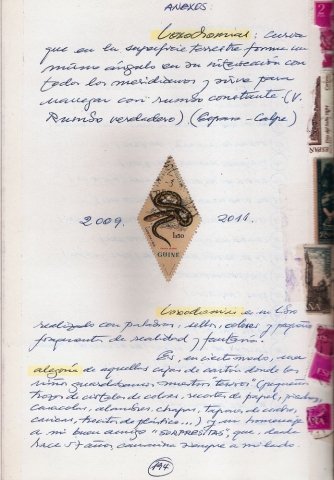 ANEXOS:
Loxodromias: Curva
que en la superficie terrestre forma un
mismo ángulo en su intersección con
todos los meridianos y sirve para
navegar con rumbo constante (V.
Rumbo verdadero) (Espasa-Calpe)
2009. 2011.
1$50
GUINÉ
Loxodromias es un libro
realizado con palabras, sellos, colores y pequeños
fragmentos de realidad y fantasía.
Es, en cierto modo, una
alegoría de aquellas cajas de cartón donde los
niños guardábamos nuestros tesoros (pequeños
trozos de cristales de colores, recortes de papel, piedras,
caracolas, alambres, chapas, tapones de corcho,
canicas, trocitos de plástico...) y un homenaje
a mi buen amigo que, desde
hace 57 años camina siempre a mi lado.
194
2